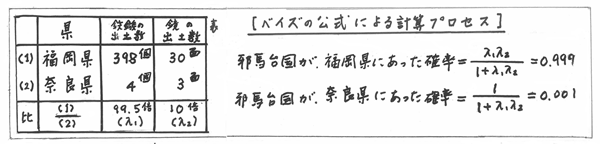 表
県 鉄鏃の出土数 鏡の出土数
(1) 福岡県 398個 30面
(2) 奈良県 4個 3面
比 (1)/(2) 99.5倍 (λ₁) 10倍 (λ₂)
[ベイズの公式による計算プロセス]
邪馬台国が、福岡県にあった確率=λ₁λ₂/(1+λ₁λ₂)=0.999
邪馬台国が、奈良県にあった確率=1/(1+λ₁λ₂)=0.001